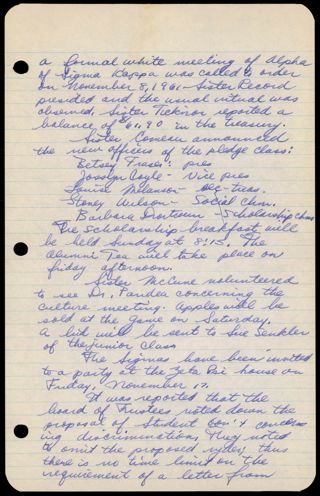 a formal white meeting of Alpha
of Sigma Kappa was called to order
on November 8, 1961 - Sister Record
presided and the usual ritual was
observed. Sister Ticknor reported a
balance of $61.90 in the treasury.
Sister Comeau announced
the new officers of the pledge class:
Betsey Fraser: pres
Josslyn Coyle - Vice pres
Louise Melanson - sec-treas.
Stoney Wilson - Social Chm.
Barbara - Scholarship chm
The scholarship breakfast will
be held Sunday at 8:15. The
alumni Tea will take place on
friday afternoon.
Sister McClune volunteered
to see Dr. concerning the
culture meeting. Apples will be
sold at the game on Saturday.
A bid will be sent to Sue
of the junior Class
The Sigmas have been invited
to a party at the Zeta Psi house on
Friday, November 17.
It was reported that the
board of Trustees voted down the
proposal of Student Gov't concern
ing discrimination. They voted
to omit the proposed rider, thus
there is no time limit on the
requirement of a letter from